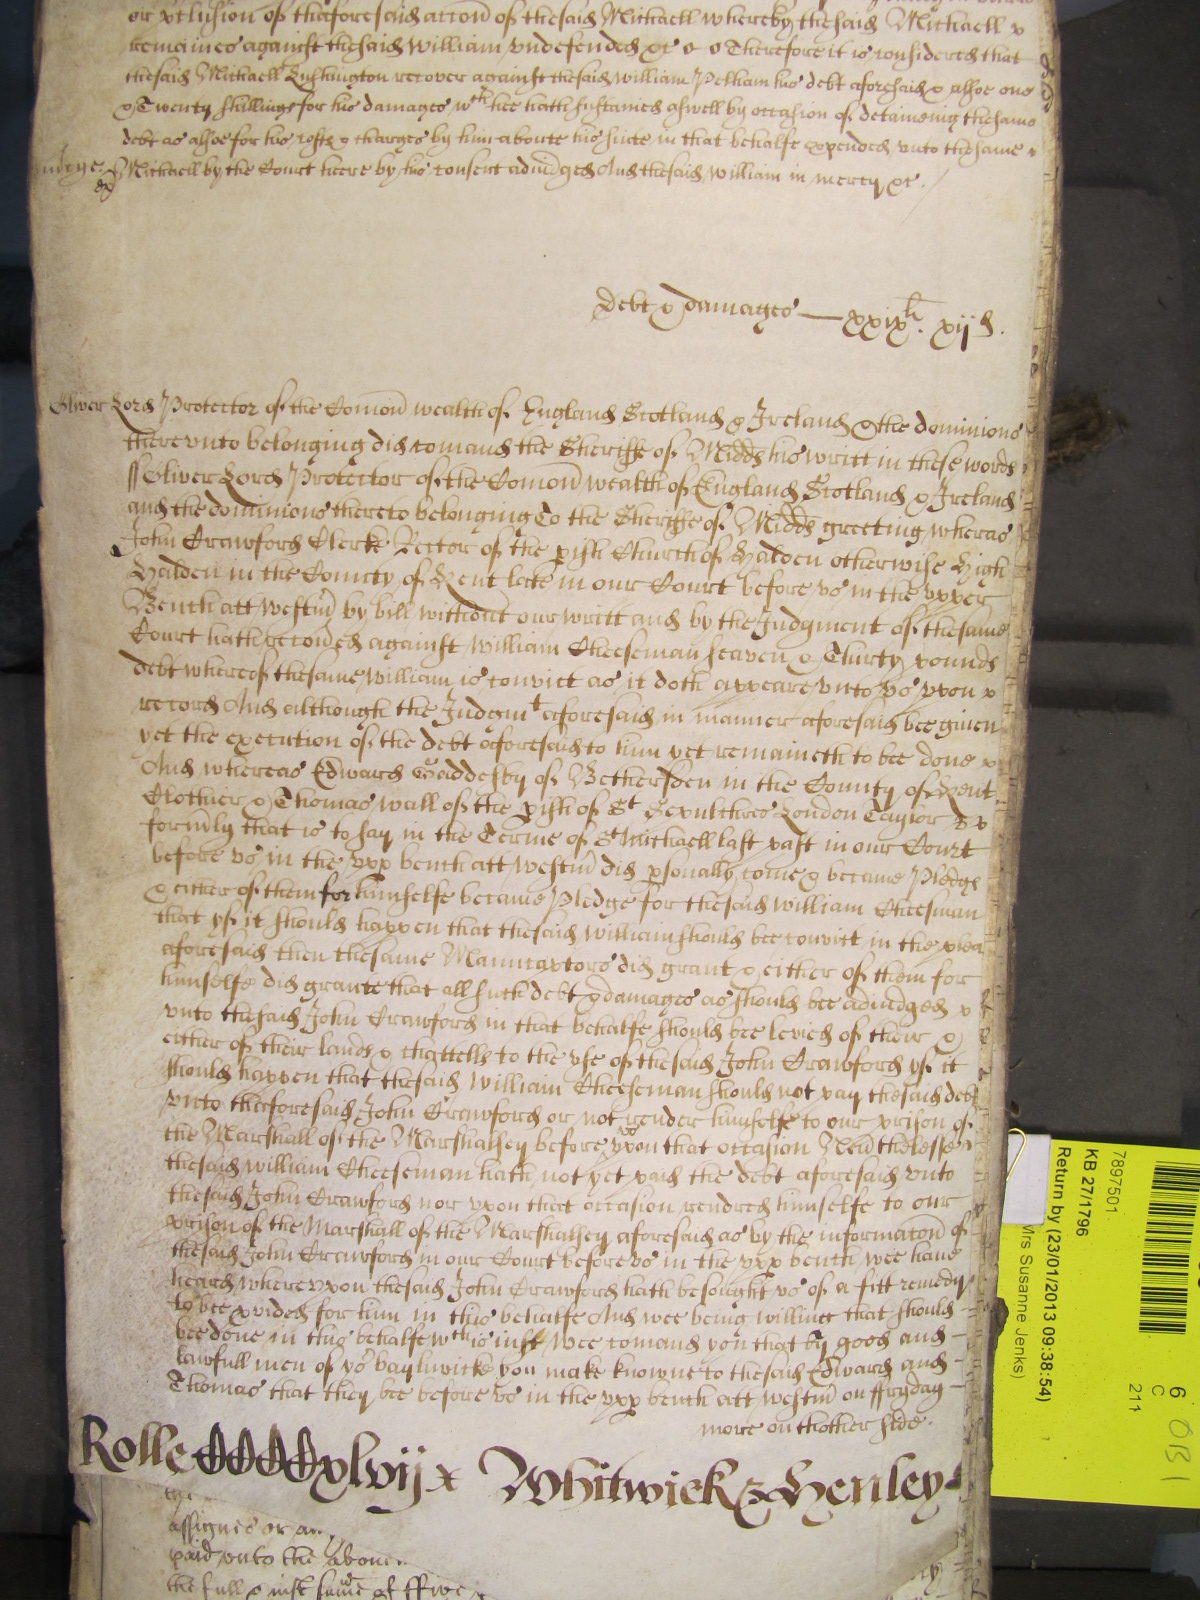 or exclusion of thaforesaid accon of thesaid Michaell whereby thesaid Michaell
remaines against thesaid William vndefended &c Therefore it is considered that
thesaid Michaell Lushington recover against thesaid William Pelham his debt aforesaid & alsoe one
& Twenty shillings for his damages wch hee hath sustained aswell by occasion of detaineing thesame
debt as alsoe for his costs & charges by him aboute his suite in that behalfe expended vnto thesame
Michaell by the Court heere by his consent adiudged And thesaid William in mercy &c.
debt & damages — xxixli. xijd.
Oliver Lord Protector of the Comon wealth of England Scotland & Ireland & the dominions
therevnto belonging did comand the Sheriffe of Midds his writt in these words
ss Oliver Lord Protector of the Comon wealth of England Scotland & Ireland
and the dominions thereto belonging To the Sheriffe of Midds greeting wheras
John Crawford Clerke Rector of the pish Church of Halden otherwise High
Halden in the County of Kent late in our Court before vs in the vpper
Bench att Westm by bill without our writt and by the Judgment of thesame
Court hath recoued against William Cheeseman seaven & Thirty pounds
debt whereof thesame William is convict as it doth appeare vnto vs vpon
record And although the Judgmt aforesaid in manner aforesaid bee given
yet the execution of the debt aforesaid to him yet remaineth to bee done
And whereas Edward Gaddesby of Bethersden in the County of Kent
Clothier & Thomas Wall of the pish of St Sepulchres London Taylor
formly that is to say in the Terme of St Michaell last past in our Court
before vs in the vpp bench att Westm did psonally come & became Pledge
& either of them for himselfe became Pledge for thesaid William Cheesman
that yf it should happen that thesaid William should bee convict in the plea
aforesaid then thesame Manucaptors did grant & either of them for
himselfe did grante that all such debt & damages as should bee adiudged
vnto thesaid John Crawford in that behalfe should bee levied of their &
either of their lands & chattells to the vse of thesaid John Crawford yf it
should happen that thesaid William Cheeseman should not pay thesaid debt
vnto thaforesaid John Crawford or not render himselfe to our prison of
the Marshall of the Marshalsey before vs vpon that occasion Neiuthelesse
thesaid William Cheeseman hath not yet paid the debt aforesaid vnto
thesaid John Crawford nor vpon that occasion rendred himselfe to our
prison of the Marshall of the Marshalsey aforesaid as by the informacon of
thesaid John Crawford in our Court before vs in the vpp bench wee haue
heard wherevpon thesaid John Crawford hath besought vs of a fitt remedy
to bee pvided for him in this behalfe And wee being willing that should
bee done in this behalfe wch is iust wee comand you that by good and
lawfull men of yor baylywicke you make knowne to thesaid Edward and
Thomas that they bee before vs in the vpp bench att Westm on ffryday
more on thother side.
Rolle CCCCxlvij Whitwick & Henley
assignes or any
paid vnto the aboue
the full & iust sume of ffive
7897501
KB 27/1796
Return by (23/01/2013 09:38:54)
Mrs Susanne Jenks)
6
C
211